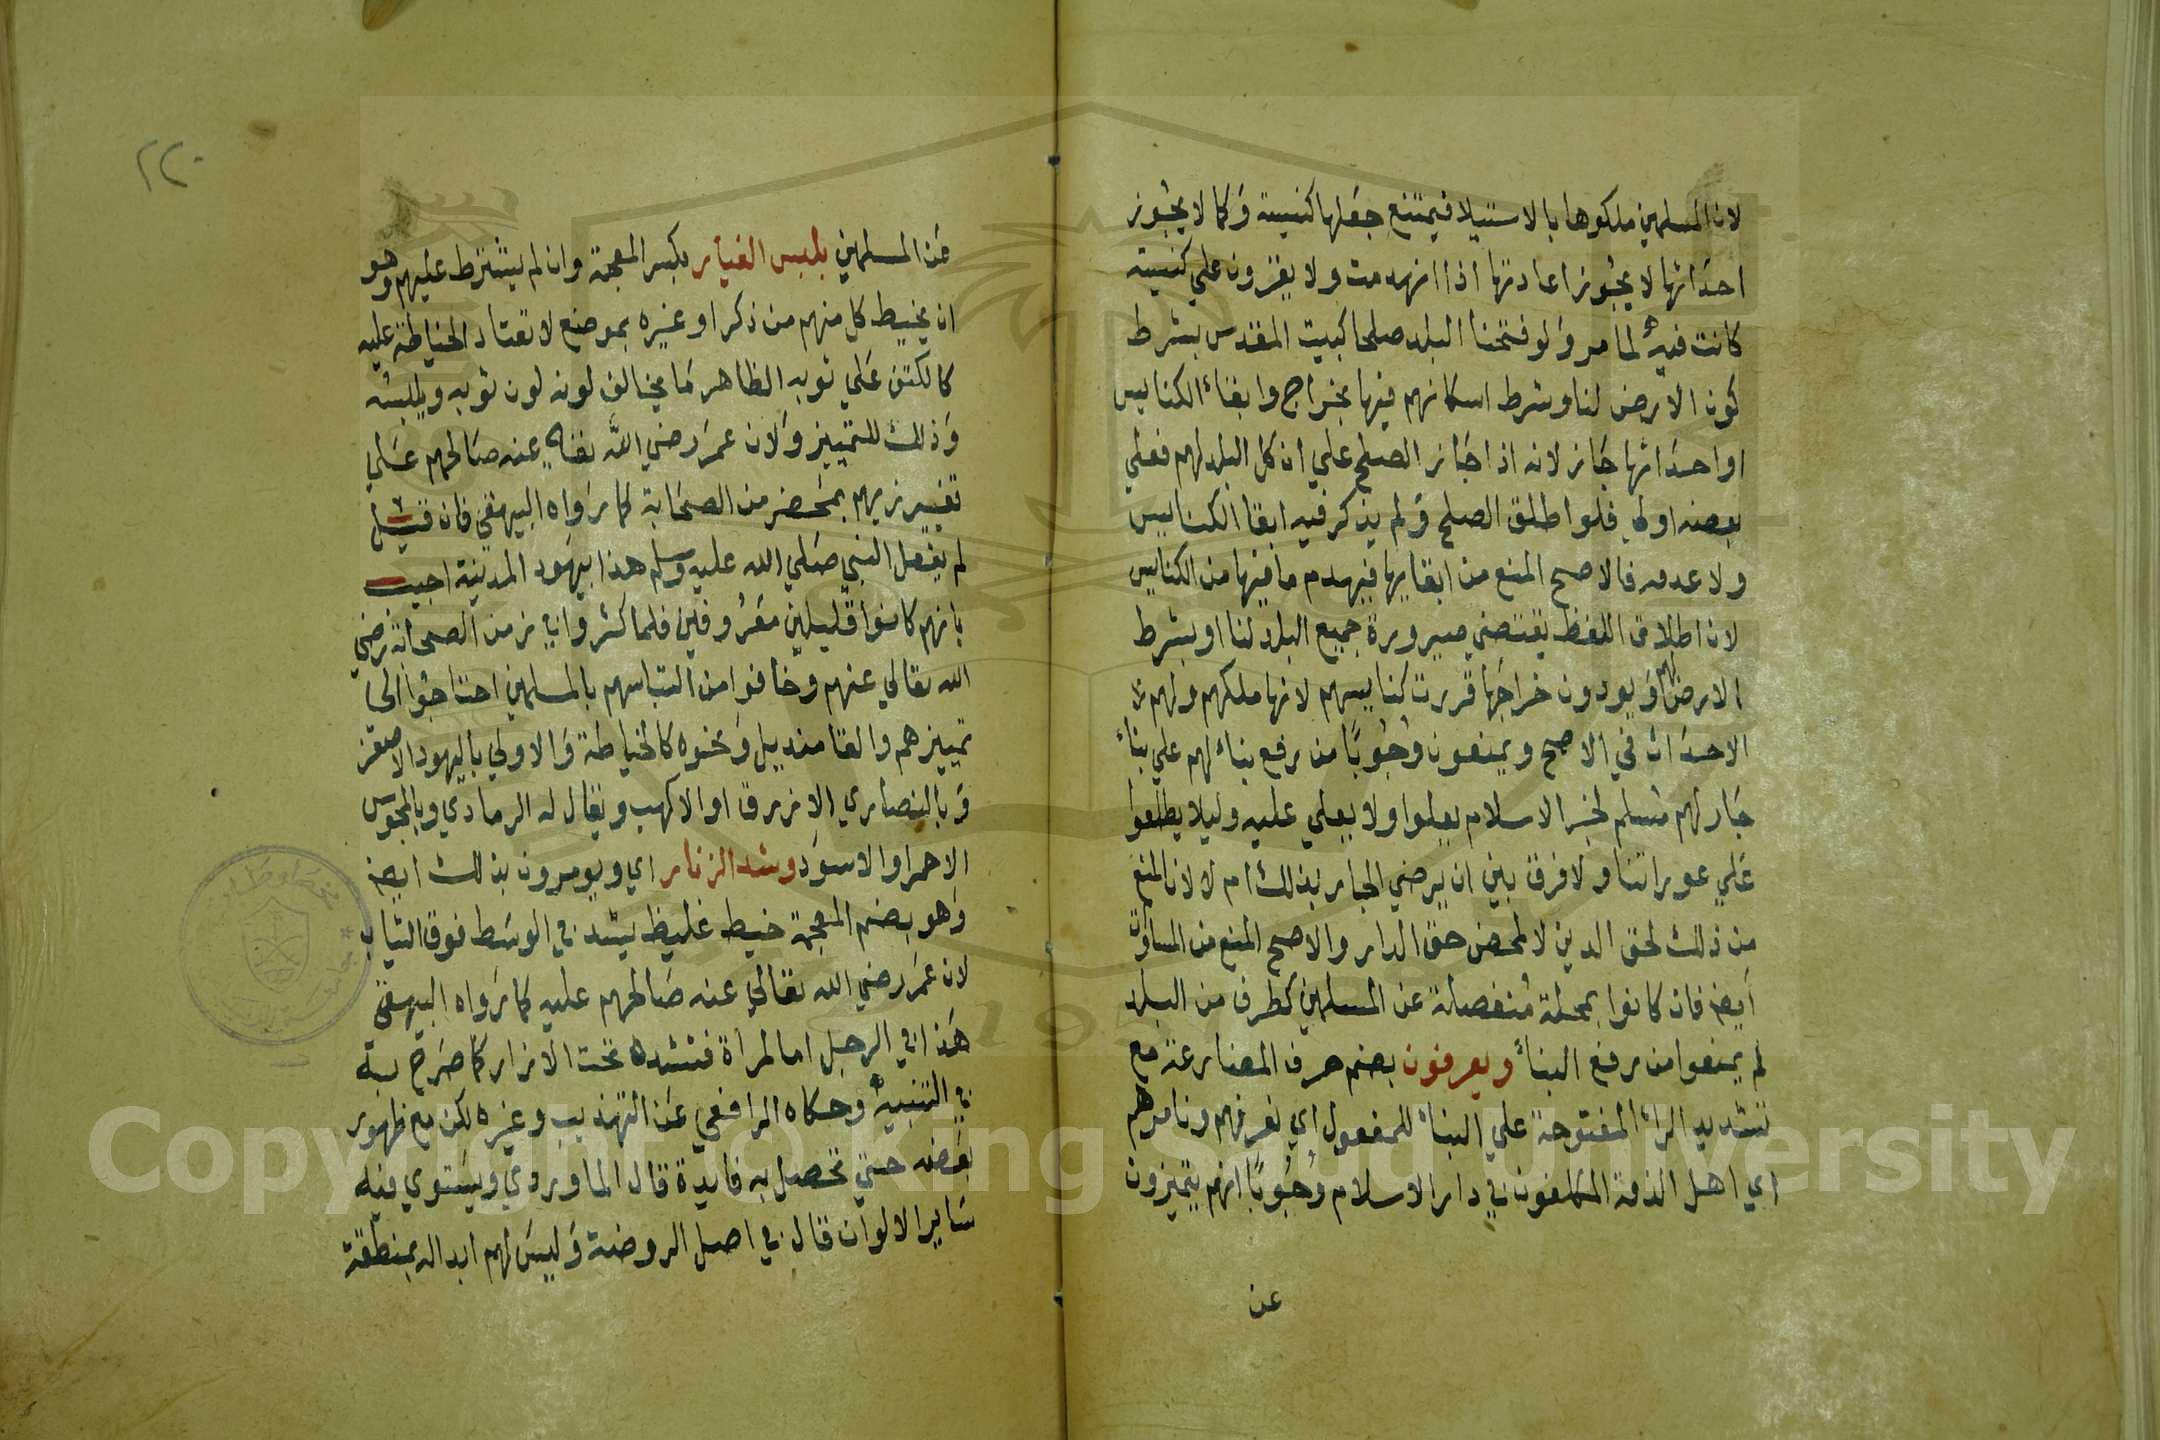 لان المسلمين ملكوها بالاستيلا فيمتنع جعلها كنيسة وَكما لا يجُوز
احدَاثها لا يجُوز اعادتها اذا انهدمت ولا يقرون علي كنيسته
كانت فيه لما مر وَلو فتحنا البلد صلحا كبيت المقدس بشرط
كون الارض لنا وشرط اسكانهم فيها بخراج وابقاء الكنايس
او احدَاثها جَائز لانه اذا جَاز الصلح علي ان كل البلد لهم فعلي
بعضه اولي فلو اطلق الصلح وَلم يذكر فيه ابقا الكنايس
ولا عدمه فالاصح المنع من ابقايها فيهدم ما فيها من الكنايس
لان اطلاق اللفظ يقتضي صيرورة جميع البلد لنا او بشرط
الارض لهم وَيودون خراجَها قررت كنايسهم لانها ملكهم ولهم
الاحدَاث في الاصح ويمنعون وُجُوبًا من رفع بناء لهم علي بناء
جَار لهم مُسلم لخبر الاسلام يعلوا ولا يعلي عليه وليلا يطلعوا
عَلي عوراتنا ولا فرق بين ان يرضي الجار بذلك ام لا لان المنع
من ذلك لحق الدين لا لمحض حق الدار والاصح المنع من المساواة
اَيضا فان كانوا بمحلة مُنفصلة عن المسلمين كطرف من البلد
لم يمنعوا من رفع البناء ويعرفون بضم حرف المضارعة مع
تشديد الراء المفتوحة علي البناء للمفعول اي نعرفهم ونامرهم
اي اهل الذمة المكلفون في دار الاسلام وُجُوبًا انهم يتميزون
عن
٢٢٠
عَن المسلمين بلبس الغيار بكسر المعجمة وان لم يشترط عليهم وهو
ان يخيط كل منهم من ذكر او غيره بموضع لا تعتاد الخياطة عليه
كالكتف عَلي ثوبه الظاهر مَا يخالف لونه لون ثوبه ويلبسه
وَذلك للتمييز وَلان عمَر رضي الله تعَالي عنه صَالحهم عَلي
تغيير زيهم بمَحضر من الصحَابة كما رَوَاه البيهقي فان قيل
لم يفعل النبي صَلي الله عليه وسلم هذا بيهَود المدينة اجيب
بانهم كانوا قليلين معرُوفين فلما كثروا في زمن الصحابة رضي
الله تعالي عنهم وخافوا من التباسهم بالمسلمين احتاجُوا الي
تمييزهم والقا منديل وَنحوه كالخياطة وَالاولي باليهود الاصفر
وَبالنصاري الازرق او الاكهب ويقال له الرمادي وبالمجوس
الاحمر او الاسوَد وشد الزنار اي ويومرون بذلك ايضا
وَهو بضم المعجمة خيط غليظ يشد في الوسَط فوق الثياب
لان عمَر رضي الله تعَالي عنه صَالحهم عليه كما رَواه البيهقي
هَذا في الرجل اما المراة فتشده تحت الازار كما صَرح به
في التنبيه وحكاه الرافعي عَن التهذيب وغيره لكن مع ظهور
بعَضه حتي تحصل به فايدة قال الماوردي ويسَتوي فيه
سَاير الالوان قال في اصل الروضة وَليسَ لهم ابداله بمنطقة
Copyright © King Saud University